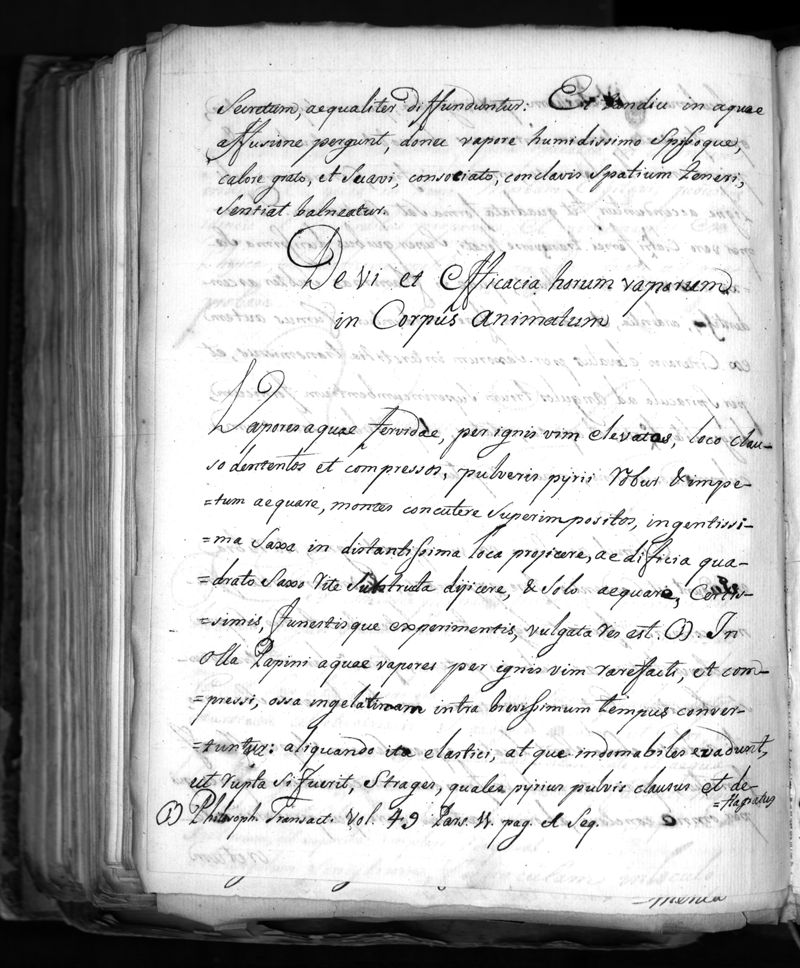 Secretum, aequaliter diffunduntur: Et tandiu in aquae
affusione pergunt, donec vapore humidissimo Spissoque,
calore grato, et Suavi, consociato, conclavis Spatium teneri,
Sentiat balneatur.
De vi et Efficacia horum vaporum
in Corpus animatum
Vapores aquae fervidae, per ignis vim elevatos, loco clau-
so dententos et compressos, pulveris pyrii robur & impe-
=tum aequare, montes concutere Superimpositos, ingentissi-
=ma Saxa in distantissima loca projicere, aedificia qua-
=drato Saxo rite Substructa dijicere, & Solo aequare, Certis-
=simis, funestisque experimentis, vulgata res est. In
olla Papini aquae vapores per ignis vim rarefacti, et com-
=pressi, ossa in gelatinam intra brevissimum tempus conver-
=tuntur: aliquando ita elastici, atque indomabiles evadunt,
ut rupta Si fuerit, Strages, quales pyrius pulvis clausus et de-
=flagratus
Philosoph. Transact. Vol. 49 Pars. pag. Seq.